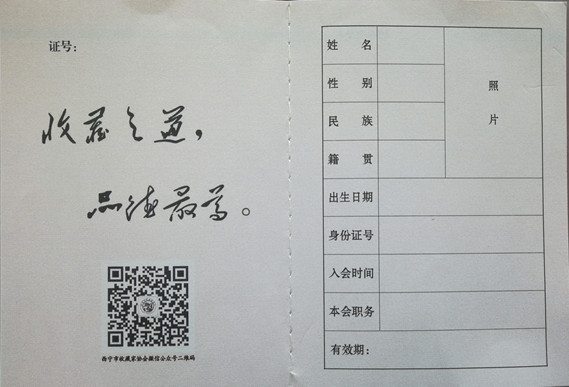 证号：
收藏之道，
品德最高。
西宁市收藏家协会微信公众号二维码
姓 名
照
片
性 别
民 族
籍 贯
出生日期
身份证号
入会时间
本会职务
有效期：